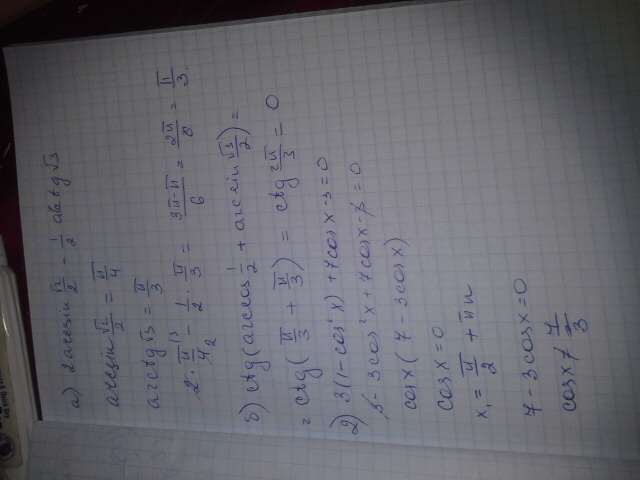 а) 2 arcsin √2/2 − 1/2 arctg √3
arcsin √2/2 = π/4
arctg √3 = π/3
2 · π/4 − 1/2 · π/3 = (3π−π)/6 = 2π/6 = π/3
б) ctg(arccos 1/2 + arcsin √3/2) =
= ctg(π/3 + π/3) = ctg 2π/3 = 0
2) 3(1−cos²x) + 7cosx−3=0
3−3cos²x+7cosx−3=0
cosx(7−3cosx)
cosx=0
x₁ = π/2 + πn
7−3cosx=0
cosx≠7/3